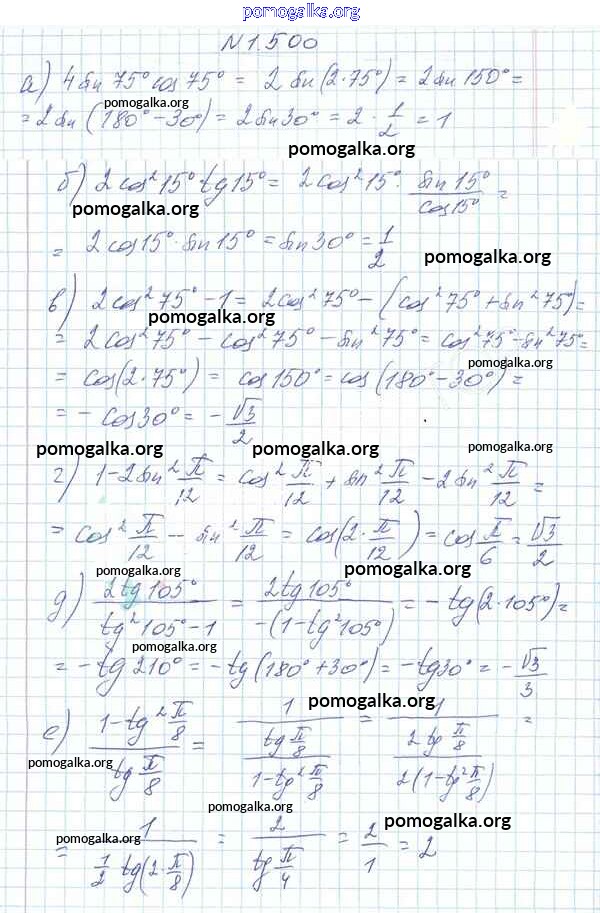 pomogalka.org
N 1.500
а) 4 sin 75° cos 75° = 2 sin (2·75°) = 2 sin 150° =
pomogalka.org
= 2 sin (180° - 30°) = 2 sin 30° = 2 · 1/2 = 1
pomogalka.org
б) 2 cos² 15° tg 15° = 2 cos² 15° · sin 15°/cos 15° =
pomogalka.org
= 2 cos 15° · sin 15° = sin 30° = 1/2
pomogalka.org
в) 2 cos² 75° - 1 = 2 cos² 75° - (cos² 75° + sin² 75°) =
pomogalka.org
= 2 cos² 75° - cos² 75° - sin² 75° = cos² 75° - sin² 75° =
pomogalka.org
= cos (2·75°) = cos 150° = cos (180° - 30°) =
= - cos 30° = - √3/2
pomogalka.org pomogalka.org pomogalka.org
г) 1 - 2 sin² π/12 = cos² π/12 + sin² π/12 - 2 sin² π/12 =
= cos² π/12 - sin² π/12 = cos (2 · π/12) = cos π/6 = √3/2
pomogalka.org pomogalka.org
д) 2 tg 105°/(tg² 105° - 1) = 2 tg 105°/(-(1 - tg² 105°)) = - tg (2·105°) =
= - tg 210° = - tg (180° + 30°) = - tg 30° = - √3/3
pomogalka.org
е) (1 - tg² π/8)/(tg π/8) = 1/((tg π/8)/(1 - tg² π/8)) = 1/((2 tg π/8)/(2(1 - tg² π/8))) =
pomogalka.org
pomogalka.org
pomogalka.org
pomogalka.org
= 1/(1/2 tg (2 · π/8)) = 2/(tg π/4) = 2/1 = 2